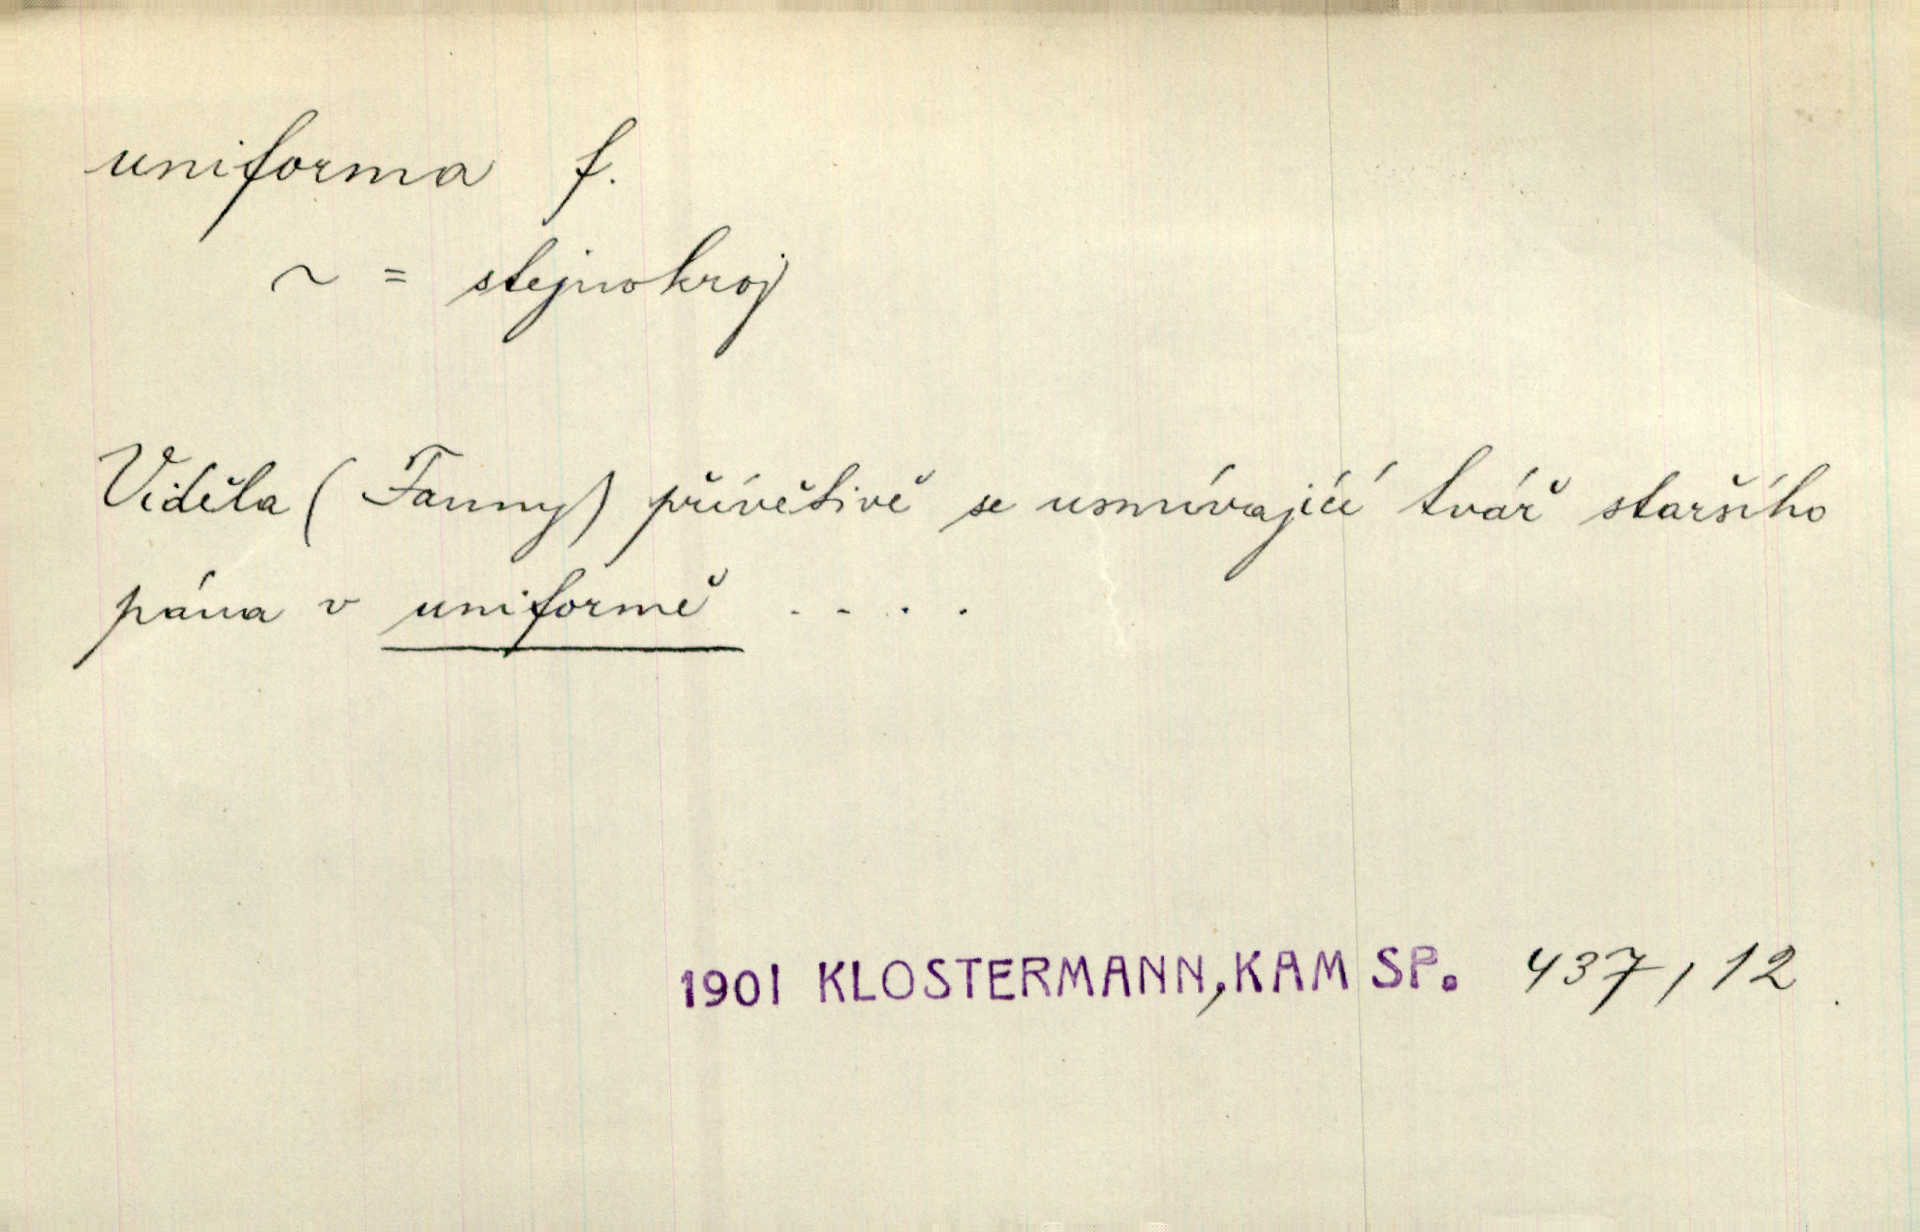 uniforma f.
~ = stejnokroj
Viděla (Fanny) přívětivě se usmívající tvář staršího
pána v uniformě ....
1901 KLOSTERMANN, KAM SP. 437, 12